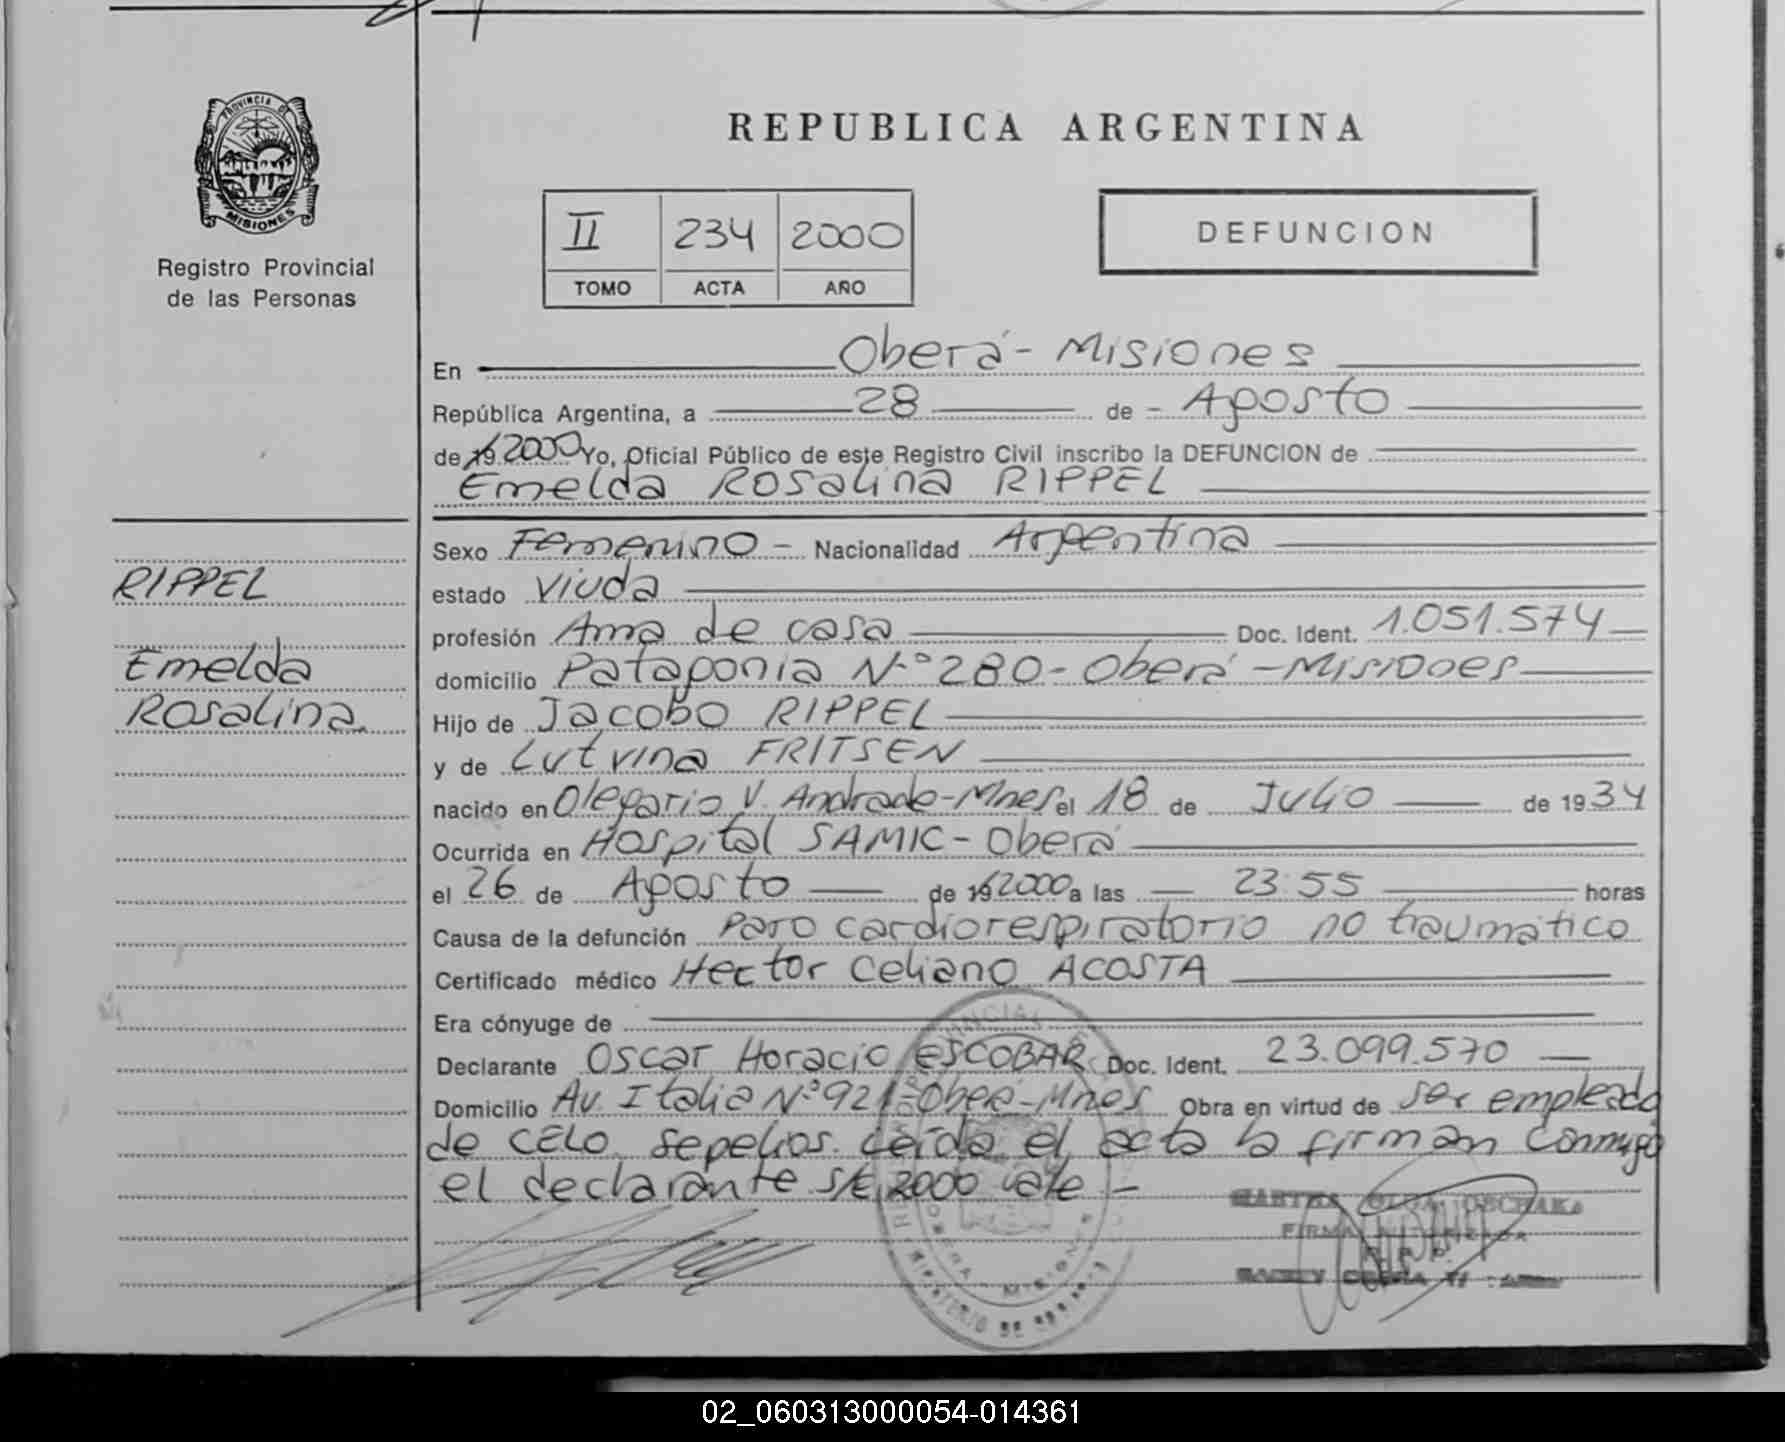 PROVINCIA DE
MISIONES
Registro Provincial
de las Personas
REPUBLICA ARGENTINA
II 234 2000
TOMO ACTA AÑO
DEFUNCION
En Oberá - Misiones
República Argentina, a 28 de - Agosto
de 19 2000 Yo, Oficial Público de este Registro Civil inscribo la DEFUNCION de
Emelda Rosalina RIPPEL
RIPPEL
Emelda
Rosalina.
Sexo Femenino - Nacionalidad Argentina
estado Viuda
profesión Ama de casa Doc. Ident. 1.051.574
domicilio Patagonia N.° 280 - Oberá - Misiones
Hijo de Jacobo RIPPEL
y de Lutvina FRITSEN
nacido en Olegario V. Andrade - Mnes el 18 de Julio de 1934
Ocurrida en Hospital SAMIC - Oberá
el 26 de Agosto de 19 2000 a las 23:55 horas
Causa de la defunción Paro cardiorespiratorio no traumático
Certificado médico Hector Celiano ACOSTA
Era cónyuge de
Declarante Oscar Horacio ESCOBAR Doc. Ident. 23.099.570
Domicilio Av. Italia N.° 921 - Oberá - Mnes Obra en virtud de ser empleado
de CELO, sepelios. Leída el acta la firman conmigo
el declarante s/e 2000 vale -
02_060313000054-014361